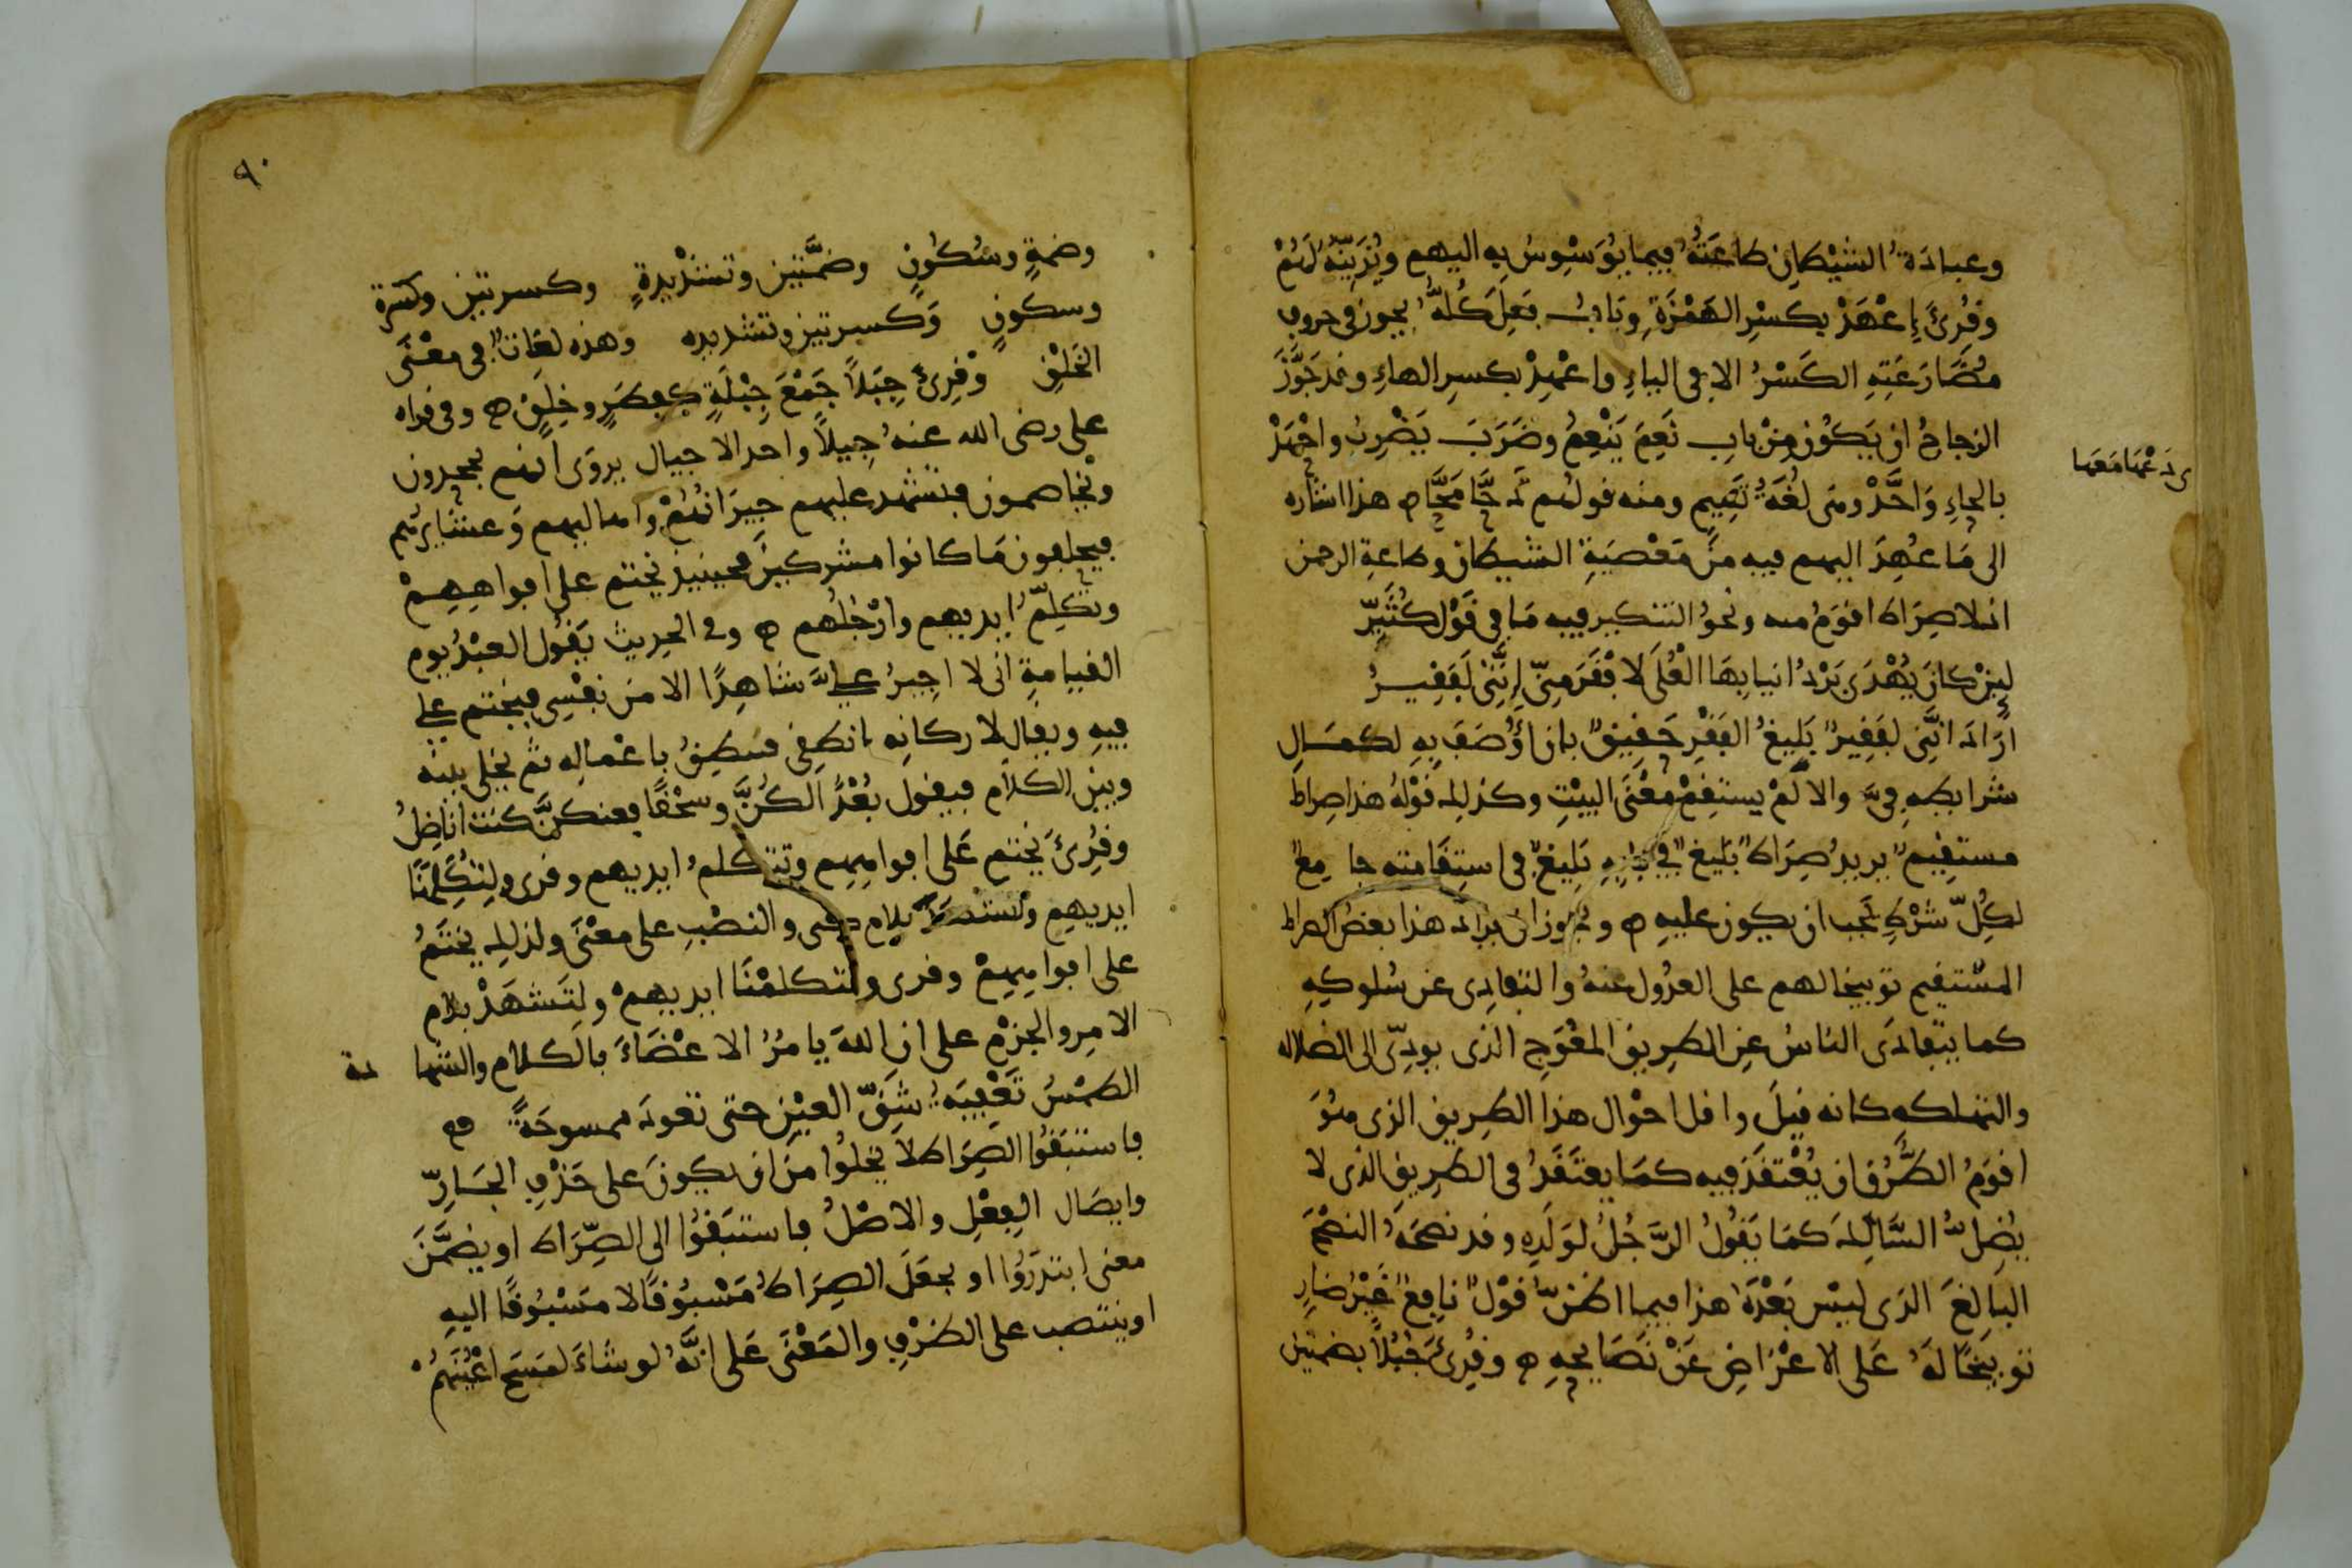 وعبادَةُ الشَّيْطانِ طاعَتُهُ فيما يُوَسْوِسُ بِهِ اليهم ويُزَيِّنُهُ لَهُمْ
وقُرِئَ إِعْهَدْ بِكَسْرِ الهَمْزَةِ وبَابُ فَعِلَ كُلُّهُ يجوز في حروف
مُضَارَعَتِهِ الكَسْرُ الا في الياءِ واعْهِدْ بكسرِ الهاءِ وقد جَوَّزَ
الزجاجُ ان يَكُونَ مِنْ بابِ نَعِمَ يَنْعِمُ وضَرَبَ يَضْرِبُ واحْهَدْ
بالحاءِ وَاحَّدْ وهى لُغَةُ تَمِيمٍ ومنه قولهم دَحَّا مَحَّا هذا اشاره
ى دَعْهَا مَعَهَا
الى مَا عُهِدَ اليهم فيه مِنْ مَعْصِيَةِ الشيطان وطاعةِ الرحمن
اذ لا صِرَاطَ اقوَمُ منه ونحوُ التنكير فيه مَا في قَوْل كُثَيِّرٍ
لَئِنْ كانَ يُهْدَى بَرْدُ انيابِهَا الْعُلَى لَافْقَرَ مِنِّى إِنَّنِى لَفَقِيرُ
ارَادَ انَّنِى لفَقِيرٌ بَلِيغُ الفَقْرِ حَقِيقٌ بان اُوصَفَ بِهِ لكمَالِ
شرايطِهِ فِيَّ والا لَمْ يستقِمْ مَعْنَى البيْتِ وكذلك قوْلُهُ هذا صِراطٌ
مستقِيمٌ يريدُ صِرَاطٌ بَلِيغٌ في بابِهِ بَلِيغٌ في استِقَامته جامِعٌ
لكُلِّ شرْطٍ يَجب ان يكون عليهِ ويجوز ان يرادَ هذا بعضُ الصراط
المسْتقِيم توبيخا لهم على العدُول عنهُ والتفادِى عن سُلوكِهِ
كما يتفادَى الناسُ عنِ الطرِيق المعْوَجِ الذى يودِّى الى الضلاله
والتهلكه كانه قيلَ واقل احوْال هذا الطرِيق الذى هُوَ
اقوَمُ الطُّرُقِ ان يُعْتقَدَ فيه كمَا يعتَقَدُ فى الطرِيق الذى لا
يُضِلُّ السَّالِكَ كمَا يَقُولُ الرَّجُلُ لوَلَدِهِ وقد نصَحَهُ النصْحَ
البَالِغَ الذى ليْس بَعْدَهُ هذا فيما اظُنُّ قوْلٌ نافِعٌ غَيْرُ ضارٍ
توبيخًا لَهُ عَلى الاعْرَاضِ عَنْ نَصَايِحِهِ وقُرِئَ جُبُلًا بضمتَين
٩٠
وضمةٍ وسُكُونٍ وضمَّتَيْن وتشْدِيدةٍ وكسرتيْن وكَسْرة
وسكونٍ وَكسرتين وتشديده وهذه لغَاتٌ في معْنَى
الخَلْقِ وقُرِئَ جِبَلاً جَمْعَ جِبْلَةٍ كفِطَرٍ وخِلَقٍ وفى قراه
على رضى الله عنهُ جِيلاً واحد الاجيال يروَى انهم يجحدون
ويُخاصمون فتشهد عليهم جيرَانُهُمْ واهاليهم وَعشايرهُم
فيحلفون مَا كانوا مشركِينَ فحينيذٍ نختم على افواهِهِمْ
وتكلِّمُ ايديهم وارْجُلُهم وفى الحدِيث يَقُول العبْدُ يوم
القيامةِ انى لا اجِيزُ عليَّ شاهِدًا الا من نفْسِى فيُختم على
فِيهِ ويقال لاركانِه انطِقِى فتنطِقُ باعْمالِه ثم يخلى بينه
وبينَ الكلام فيقول بُعْدًا لكُنَّ وسُحْقًا فعنكنَّ كنت اناضِلُ
وقُرِئَ نختم عَلى افواهِهِم وتتكلمُ ايديهم وقرى ولِتُكَلِّمَنَا
ايديهِم وتشهدَ بلامِ كى والنصْبِ على معْنَى ولذلك نختَمُ
على افواهِهِمْ وقرى ولتكلمْنَا ايديهمْ ولتَشهَدْ بلام
الامِر والجزْمِ على ان اللهَ يامُرُ الاعْضَاءَ بالكلام والشهادة
الطمْسُ تَعْفِيَةُ شَقِّ العيْنِ حتى تعودَ ممسوحَةً
فاستبَقُوا الصِرَاط لا يخلوا من ان يكونَ على حَذْفِ الجَارِّ
وايصَال الفِعْلِ والاصْلُ فاستبَقُوا الى الصِّرَاط او يضمَّنَ
معنى ابتدَرُوا او يجعَلَ الصِرَاطُ مَسْبُوقًا لا مسْبُوقًا اليهِ
او ينتصب على الظرْفِ والمَعْنَى عَلى انَّهُ لو شاءَ لمسَحَ اعْيُنَهُمْ